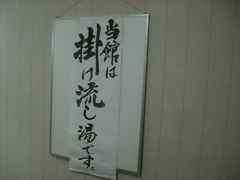 当館は
掛け流し湯です。